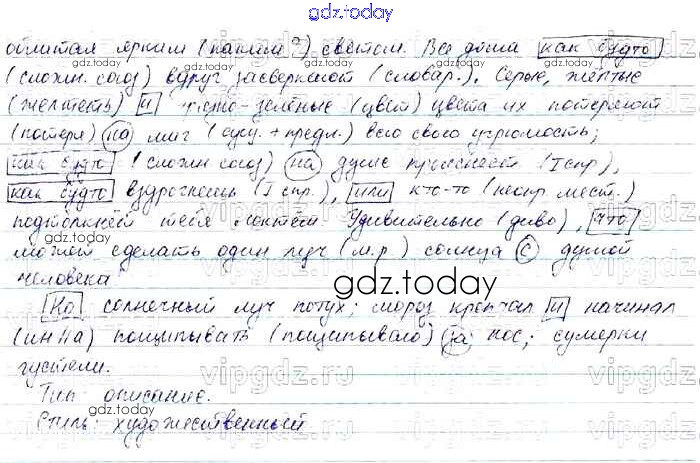 gdz.today
облитая ярким (каким?) светом. Все дома как будто
(сложн. союз) вдруг засверкают (словар.). Серые, жёлтые
(желтеть) и грязно-зелёные (цвет) цвета их потеряют
(потеря) на миг (сущ. + предл.) всю свою угрюмость;
как будто (сложн союз) на душе прояснеет (I спр),
как будто вздрогнешь (I спр.), или кто-то (неопр. мест.)
подтолкнёт тебя локтем. Удивительно (диво), что
может сделать один луч (м.р.) солнца с душой
человека
Но солнечный луч потух; мороз крепчал и начинал
(ин На) пощипывать (пощипывало) за нос; сумерки
густели.
Тип: описание.
Стиль: художественный
gdz.today
vipgdz.ru